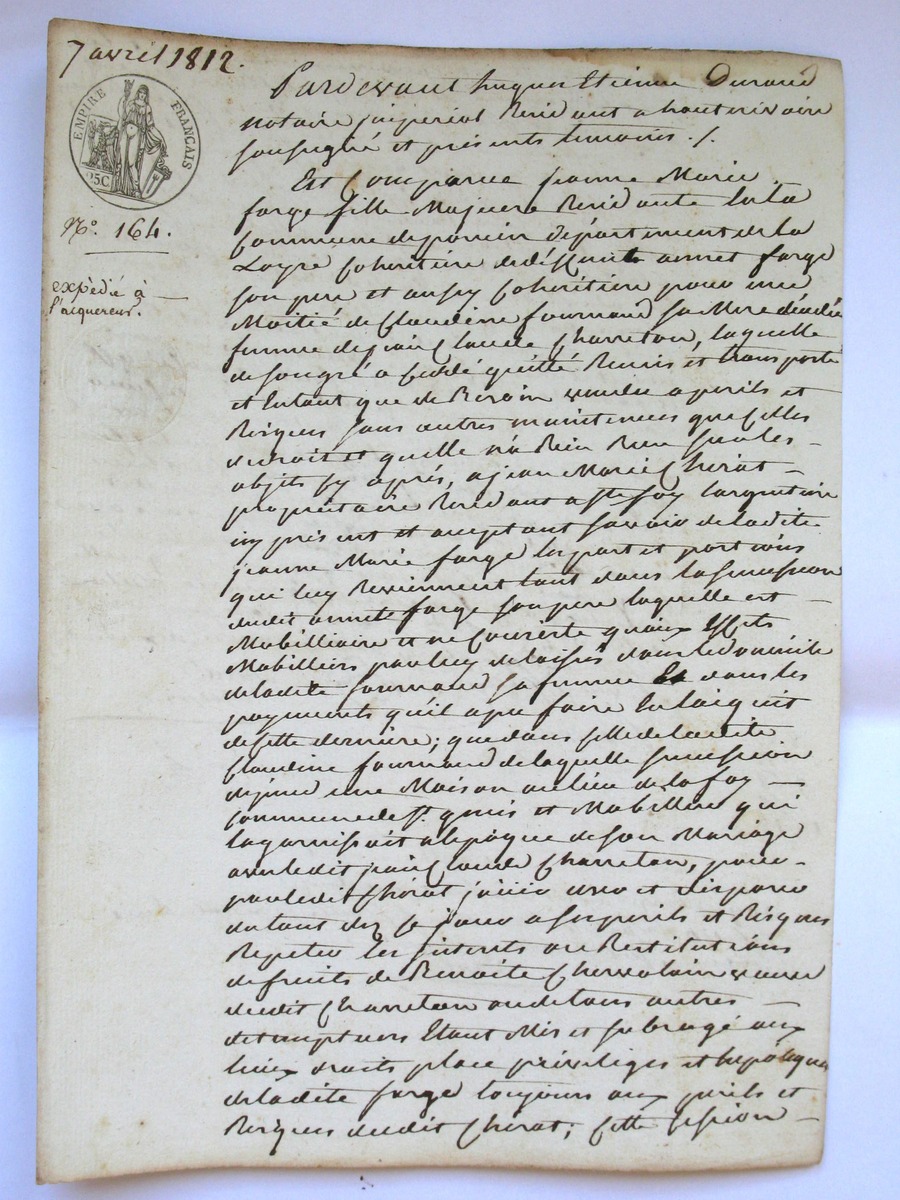 7 avril 1812.
EMPIRE FRANÇAIS
25C
N.o 164.
expédié à
l'acquereur.
Pardevant hugues Etienne Durand
notaire imperial Residant a hauterivoire
soussigné et présents temoins ./.
Est Comparue jeanne Marie
farge fille Majeure Residante en la
Commune de poncin département de la
Loyre Coheritiere de deffunt annet farge
son pere et aussy Coheritiere pour une
Moitié de Claudine fournand sa Mere décédée
femme de jean Claude Charreton, laquelle
de son gré a Cedé quitté Remis et transporté
et Entant que de Besoin vendu a perils et
Risques sans autres maintenues que Celles
de droit et quelle n'a Rien Reçu sur les
objets cy après, a jean Marie Chirat
propriétaire Residant a ste foy l'argentiere
icy présent et aceptant savoir de ladite
jeanne Marie farge les part et portions
qui luy Reviennent tant dans la sucession
dudit annet farge son pere laquelle est
Mobilliaire et ne Consiste qu'aux Effets
Mobilliers par luy delaissés dans le domicile
de ladite fournand sa femme Et dans les
payments qu'il a pu faire En l'acquit
de cette derniere; que dans celle de ladite
Claudine fournand de laquelle sucession
dépend une Maison au lieu de la foy
Commune de st. genis et Mobillier qui
la garnissait a l'époque de son Mariage
avec ledit jean Claude Charreton, pour
par ledit Chirat jouir user et disposer
du tout dez ce jour a ses perils et Risques
Repeter les interets ou Restitutions
de fruits de Benoite veuve
dudit Charreton ou de tous autres
detempteurs Etant Mis et subrogé aux
lieux droits place privileges et hipoteques
de ladite farge toujours aux perils et
Risques dudit Chirat; Cette Cession